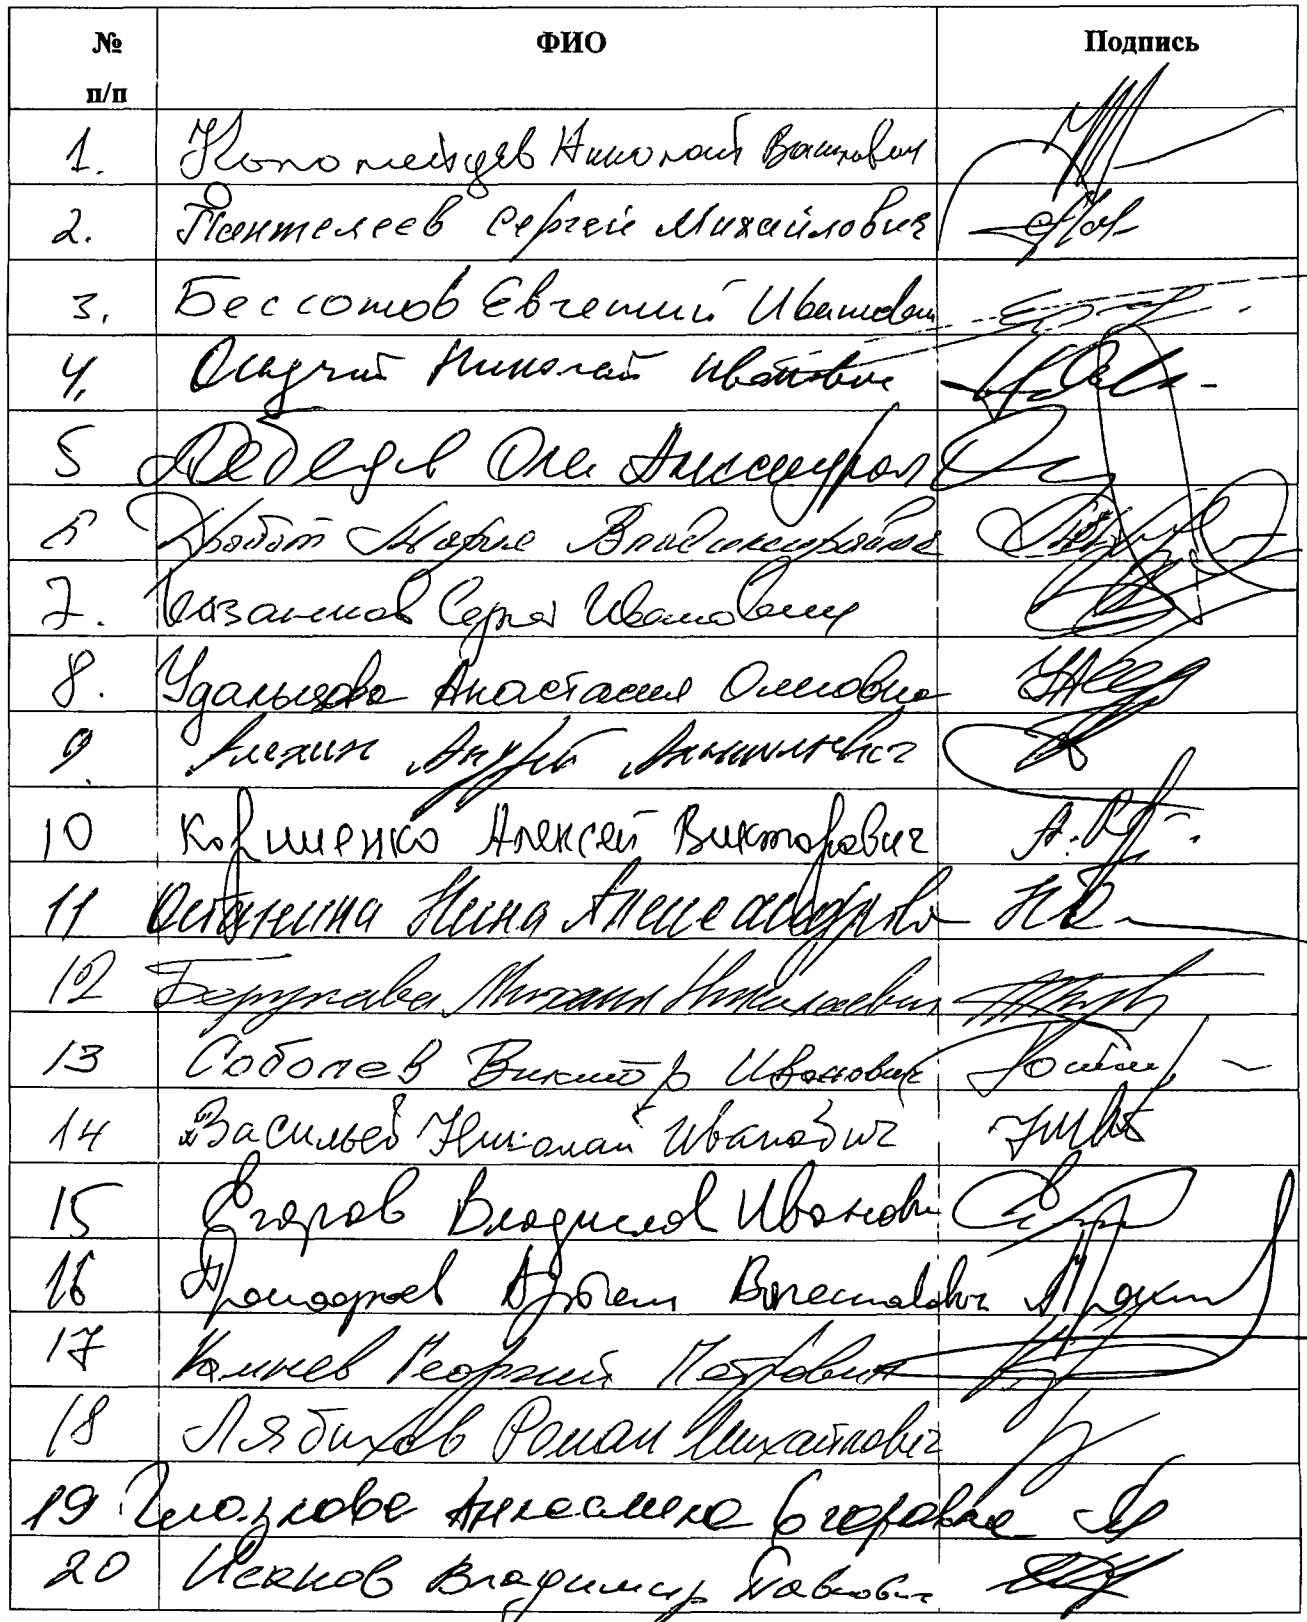 № п/п ФИО Подпись
1. Коломейцев Николай Васильевич
2. Пантелеев Сергей Михайлович
3. Бессонов Евгений Иванович
4. Осадчий Николай Иванович
5 Лебедев Олег Александрович
6 Дробот Мария Владимировна
7. Казанков Сергей Иванович
8. Удальцова Анастасия Олеговна
9. Алехин Андрей Анатольевич
10 Корниенко Алексей Викторович
11 Останина Нина Александровна
12 Берулава Михаил Николаевич
13 Соболев Виктор Иванович
14 Васильев Николай Иванович
15 Егоров Владислав Иванович
16 Прокофьев Артём Вячеславович
17 Камнев Георгий Петрович
18 Лябихов Роман Михайлович
19 Глазкова Анжелика Егоровна
20 Исаков Владимир Павлович